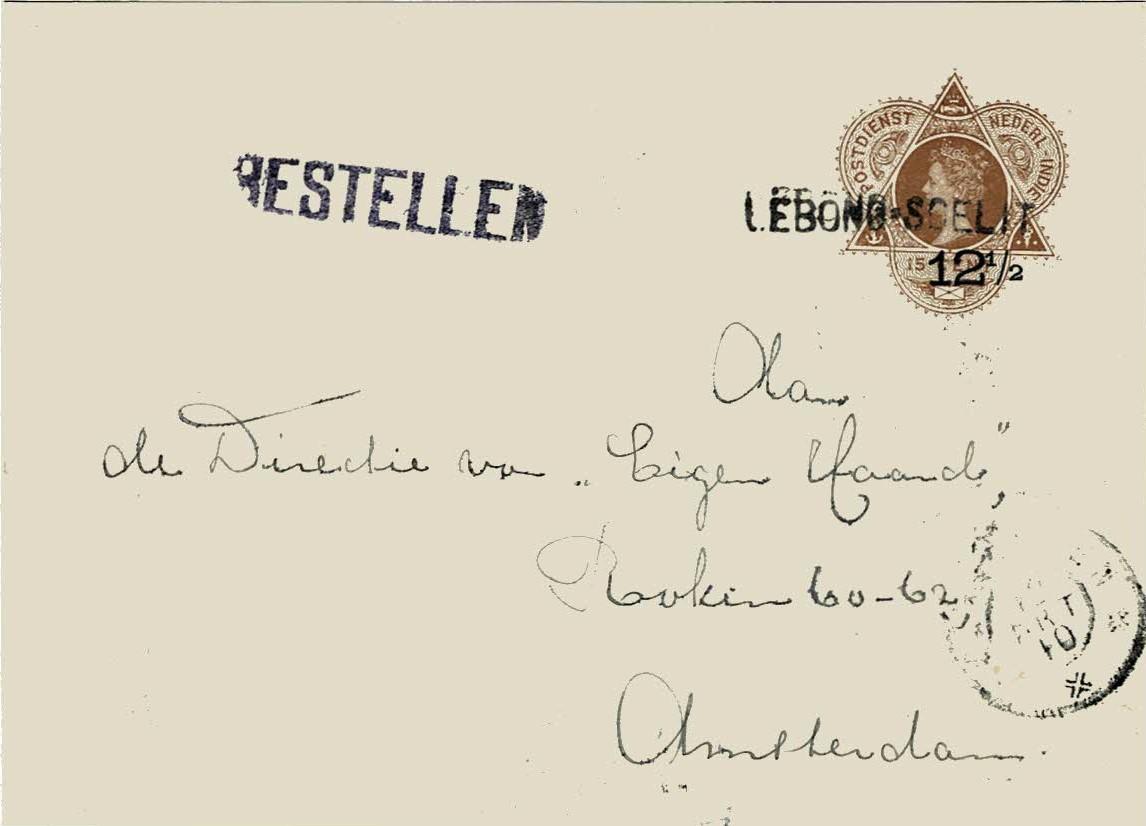 BESTELLEN
POSTDIENST NEDERL-INDIË
LEBONG-SOELIT
15 CENT
12 1/2
Aan
de Directie van „Eigen Haard",
Rokin 60-62
Amsterdam.